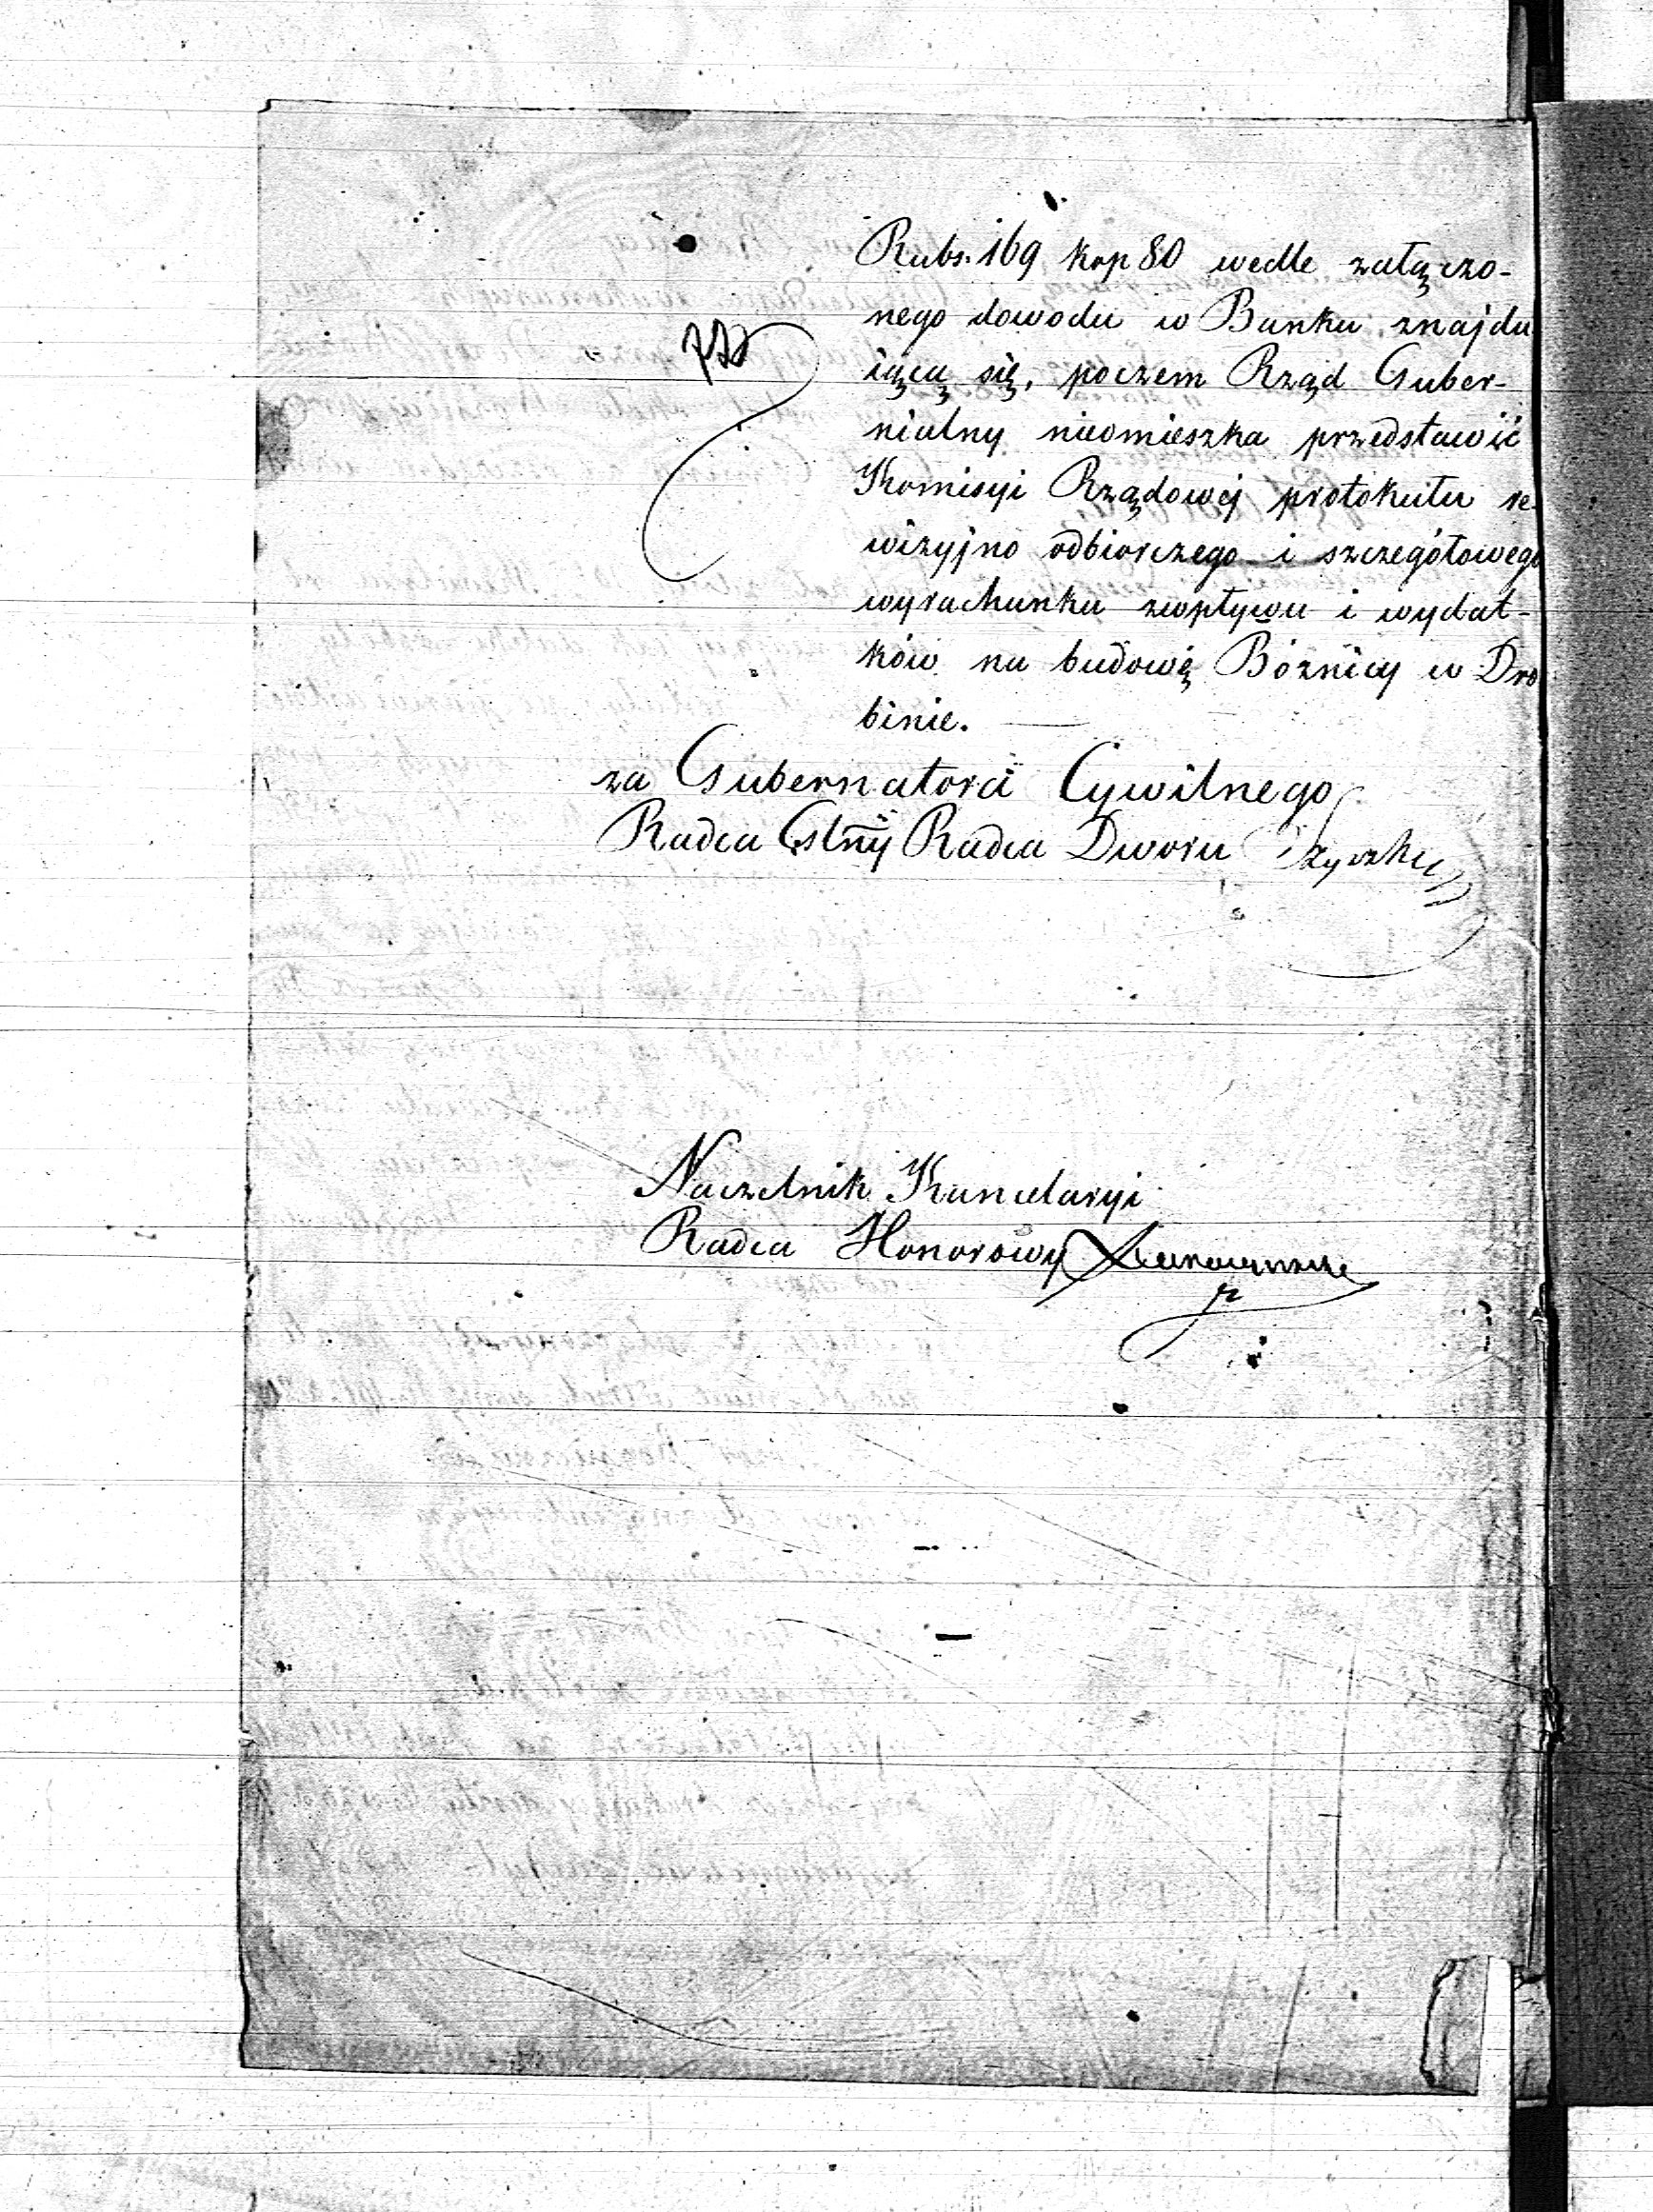 Rubs. 169 kop 80 wedle załączo-
nego dowodu w Banku znajdu
iącą się, poczem Rząd Guber-
nialny nieomieszka przedstawić
Komisyi Rządowej protokułu re-
wizyjno odbiorczego i szczegółowego
wyrachunku zwpływu i wydat-
ków na budowę Bóżnicy w Dro
binie.
za Gubernatora Cywilnego
Radca Radca Dworu
Naczelnik Kancelaryi
Radca Honorowy